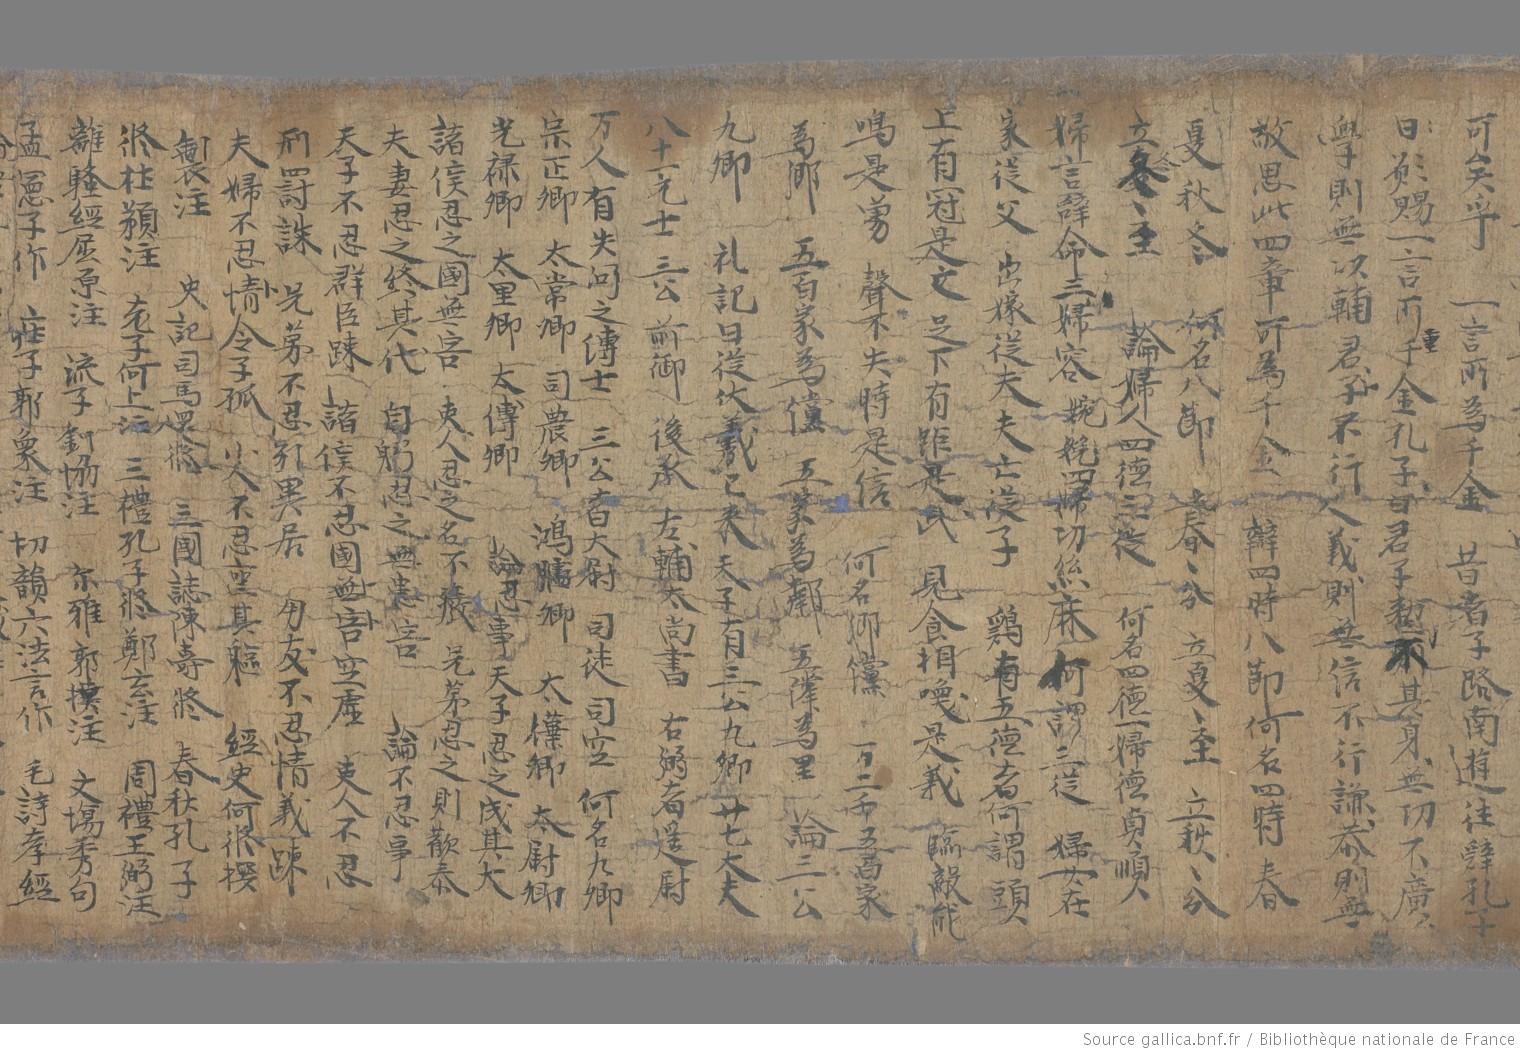 可矣乎　一言所為千金　昔者子路南遊往辞孔子
曰願賜一言所重千金孔子曰君子不其身無切不廣
學則無以輔君子不行人義則無信不行謙恭則無
故思此四章所為千金　辯四時八節　何名四時　春
夏秋冬　何名八節　春分　立夏夏至　立秋秋分
立冬冬至　論婦人四德三從　何名四德一婦德貞順二
婦言辭命三婦容婉娩四婦功絲麻　何謂三從　婦女在
家從父　出嫁從夫　夫亡從子　鷄有五德者何謂　頭
上有冠是文　足下有距是武　見食相喚是義　臨敵能
鳴是勇　聲不失時是信　何名鄉黨　万二千五百家
為鄉　五百家為儻　五家為鄰　五隣為里　論三公
九卿　礼記曰從伏羲已來天子有三公九卿廿七大夫
八十一元士　三公　前御　後承　左輔太尚書　右弼者是尉
万人有失問之傅士　三公者大尉　司徒　司空　何名九卿
宗正卿　太常卿　司農卿　鴻臚卿　太僕卿　太尉卿
光禄卿　太里卿　太傅卿　論忍事　天子忍之成其大
諸侯忍之國無害　吏人忍之名不廢　兄弟忍之則歡泰
夫妻忍之終其代　自躬忍之無患害　論不忍事
天子不忍群臣踈　諸侯不忍國無害空虛　吏人不忍
刑罰誅　兄弟不忍別異居　朋友不忍情義踈
夫婦不忍情令子孤　小人不忍喪其軀　經史何修撰
製注　史記司馬遷修　三國誌陳壽修　春秋孔子
修杜預注　老子何上注　三禮孔子修鄭玄注　周禮王弼注
離騷經屈原注　流子劉協注　尒雅郭撲注　文場秀句
孟憲子作　庄子郭象注　切韻六法言作　毛詩孝經